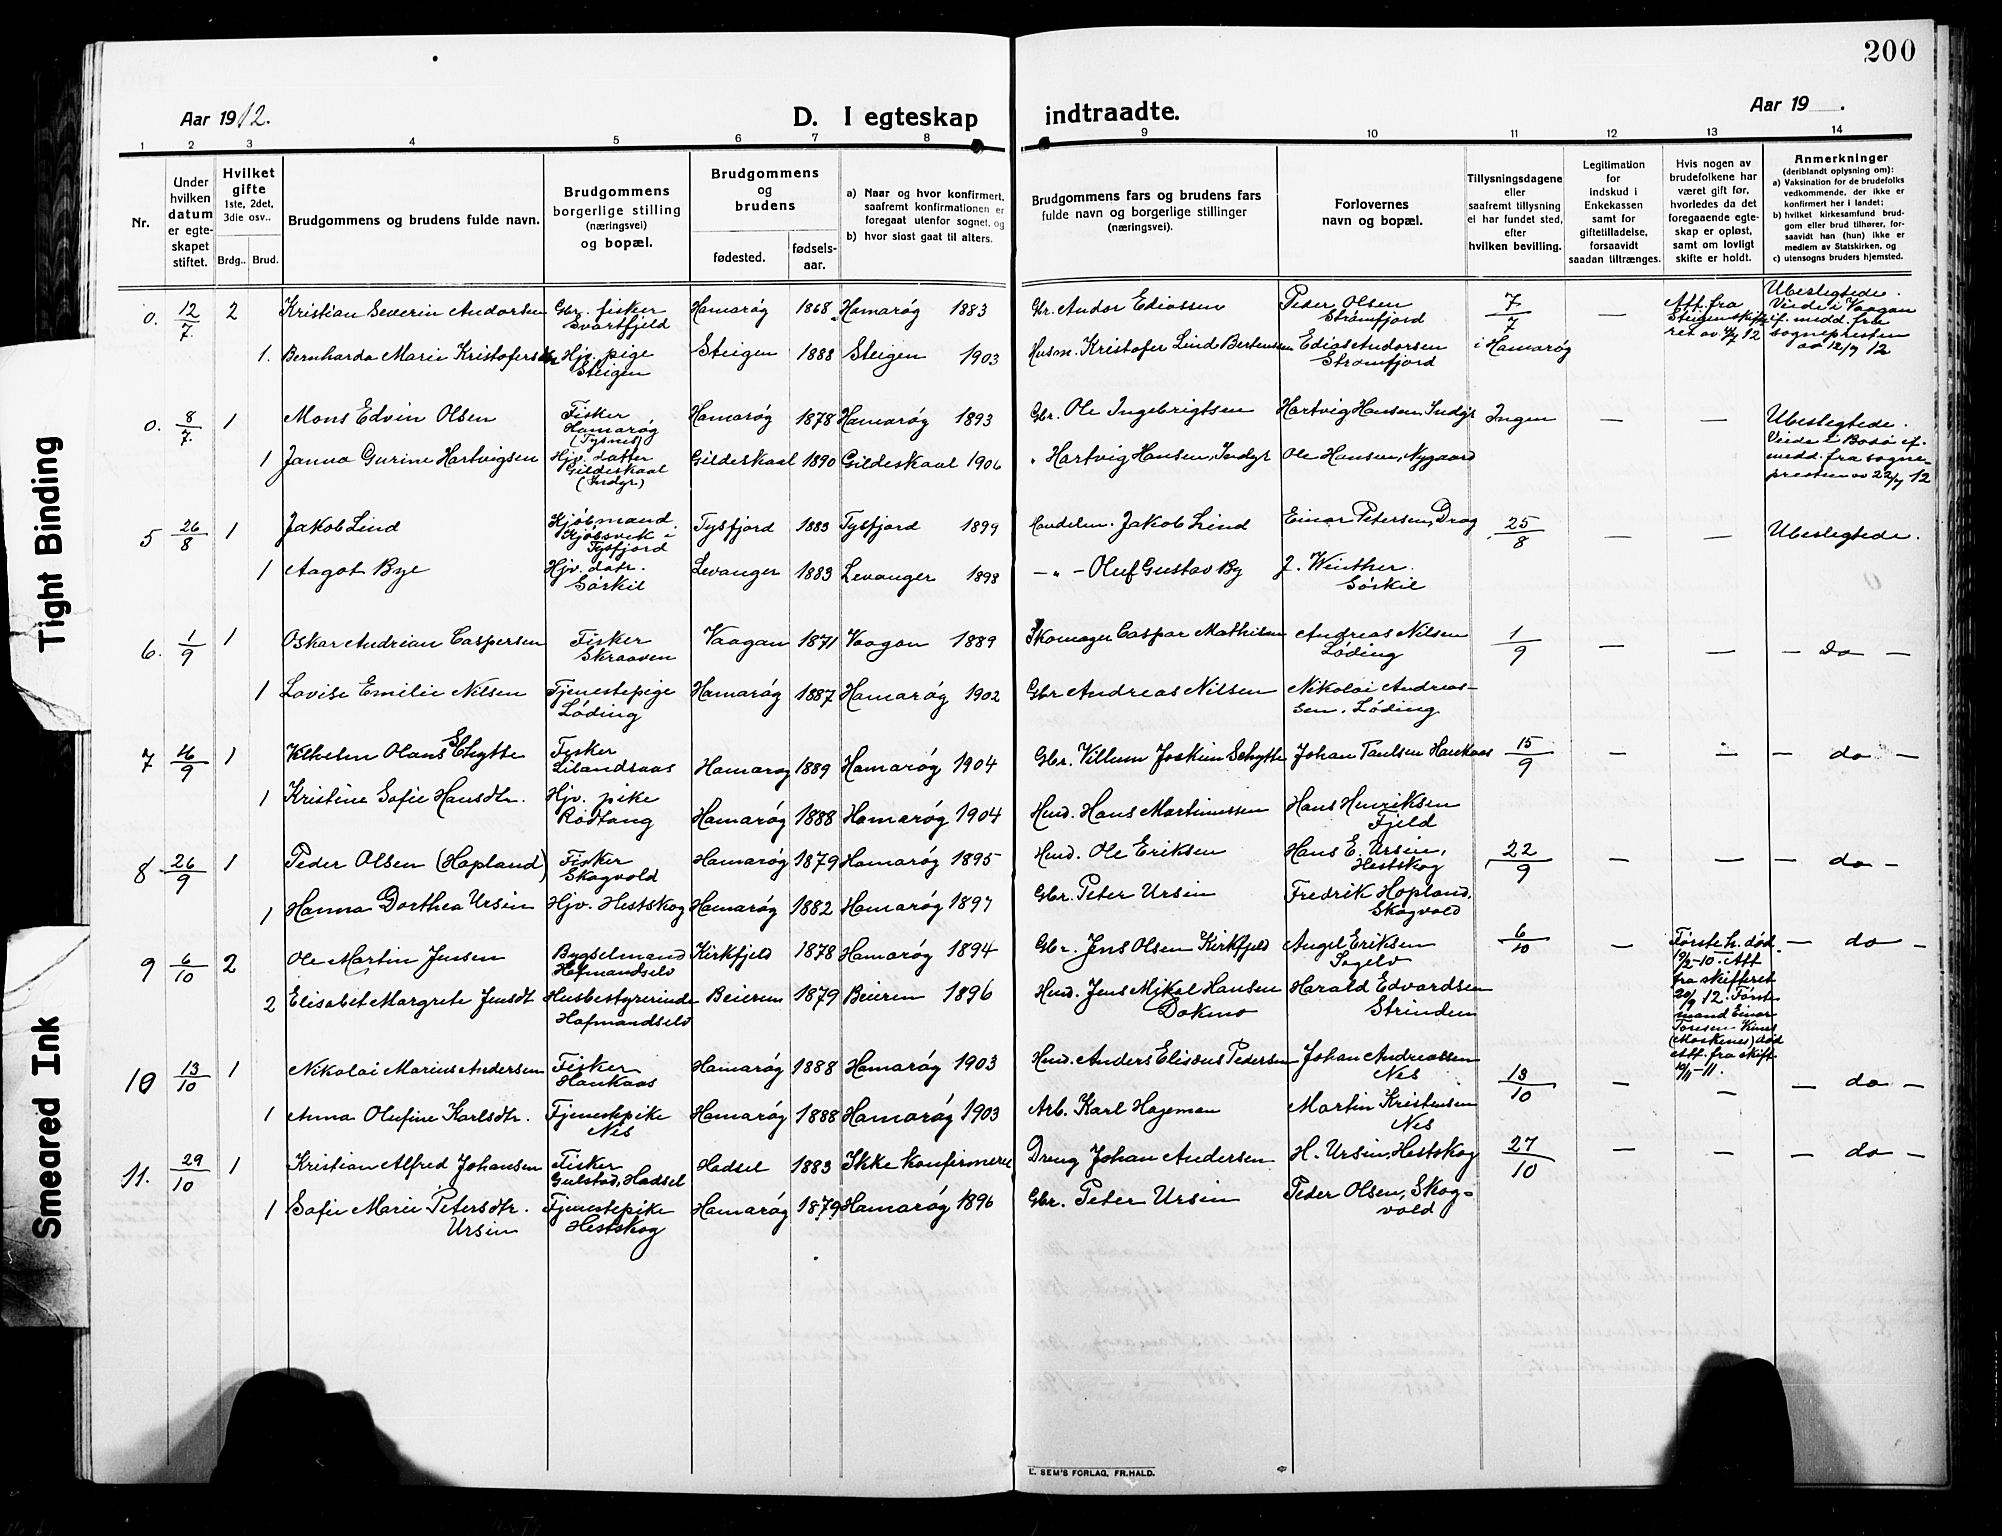 200
Aar 1912.
D. I egteskap
indtraadte.
Aar 19 .
1 2 3 4 5 6 7 8 9 10 11 12 13 14
Nr.
Under hvilken datum er egteskapet stiftet.
Hvilket gifte 1ste, 2det, 3die osv..
Brdg.. Brud.
Brudgommens og brudens fulde navn.
Brudgommens borgerlige stilling (næringsvei) og bopæl.
Brudgommens og brudens
fødested. fødselsaar.
a) Naar og hvor konfirmert, saafremt konfirmationen er foregaat utenfor sognet, og
b) hvor sidst gaat til alters.
Brudgommens fars og brudens fars fulde navn og borgerlige stillinger (næringsvei).
Forlovernes navn og bopæl.
Tillysningsdagene eller saafremt tillysning ei har fundet sted, efter hvilken bevilling.
Legitimation for indskud i Enkekassen samt for giftetilladelse, forsaavidt saadan tiltrænges.
Hvis nogen av brudefolkene har været gift før, hvorledes da det foregaaende egteskap er opløst, samt om lovligt skifte er holdt.
Anmerkninger (deriblandt oplysning om):
a) Vaksination for de brudefolks vedkommende, der ikke er konfirmert her i landet;
b) hvilket kirkesamfund brudgom eller brud tilhører, forsaavidt han (hun) ikke er medlem av Statskirken, og
c) utensogns bruders hjemsted.
0. 12/7. 2 Kristian Severin Andorsen Gbr. fisker Svartfjeld Hamarøy 1868 Hamarøy 1883 Gbr. Andor Ediassen Peder Olsen Strømfjord 7/7 i Hamarøy — Att. fra Steigen skifteret av 4/7 12 Ubeslegtede. Viede i Vaagan if. medd. fra sognepresten av 12/7 12
1. Bernharda Marie Kristofersdtr Hjv. pige Steigen Steigen 1888 Steigen 1903 Husm. Kristofer Lind Bertensen Edias Andorsen Strømfjord
0. 8/7. 1 Mons Edvin Olsen Fisker Hamarøy (Tysnes) Hamarøy 1878 Hamarøy 1893 Gbr. Ole Ingebrigtsen Hartvig Hansen, Indyr Ingen — — Ubeslegtede. Viede i Bodø ef. medd. fra sognepresten av 22/7 12
1 Janna Gurine Hartvigsen Hjv. datter Gildeskaal (Indyr) Gildeskaal 1890 Gildeskaal 1906 " Hartvig Hansen, Indyr Ole Hansen, Nygaard
5 26/8 1 Jakob Lind Kjøbmand. Kjøbsvik i Tysfjord Tysfjord 1883 Tysfjord 1899 Handelsm. Jakob Lind Einar Petersen, Drag 25/8 — — Ubeslegtede.
1 Aagot Bye Hjv. datr. Sørkil Levanger 1883 Levanger 1898 — " — Oluf Gustav By J. Winther. Sørkil
6. 1/9 1 Oskar Andrian Caspersen Fisker Skraaven Vaagan 1871 Vaagan 1889 Skomager Caspar Mathisen Andreas Nilsen Løding 1/9 — — — do —
1 Lovise Emilie Nilsen Tjenestepige Løding Hamarøy 1887 Hamarøy 1902 Gbr Andreas Nilsen Nikolai Andreassen, Løding
7 16/9 1 Vilhelm Olaus Schytte Fisker Lilandsaas Hamarøy 1889 Hamarøy 1904 Gbr. Villum Joakim Schytte Johan Paulsen Haukaas 15/9 — — — do —
1 Kristine Sofie Hansdtr. Hjv. pike Rødtang Hamarøy 1888 Hamarøy 1904 Husm. Hans Martinussen Hans Henriksen Fjeld
8 26/9 1 Peder Olsen (Hopland) Fisker Skogvold Hamarøy 1879 Hamarøy 1895 Husm. Ole Eriksen Hans E. Ursin, Hestskog 22/9 — — — do —
1 Hanna Dorthea Ursin Hjv. Hestskog Hamarøy 1882 Hamarøy 1897 Gbr. Peter Ursin Fredrik Hopland, Skogvold
9 6/10 2 Ole Martin Jensen Bygselmand Hafmandselv Kirkfjeld 1878 Hamarøy 1894 Gbr. Jens Olsen Kirkfjeld Angel Eriksen Sagelv 6/10 — Første h. død 19/2-10. Att fra skifteret 20/9 12. Første mand Einar Tonesen Kines (Moskenes) død Att. fra skift. 10/11-11. — do —
2 Elisabet Margrete Jensdt Husbestyrerinde Hafmandselv Beieren 1879 Beieren 1896 Husm. Jens Mikal Hansen Dokmo Harald Edvardsen Strinden
10 13/10 1 Nikolai Marius Andersen Fisker Haukaas Hamarøy 1888 Hamarøy 1903 Husm. Anders Elisæus Pedersen Johan Andreassen Nes 13/10 — — — do —
1 Anna Olufine Karlsdtr. Tjenestepike Nes Hamarøy 1888 Hamarøy 1903 Arb. Karl Hageman Martin Kristensen Nes
11. 29/10 1 Kristian Alfred Johansen Fisker Gulstad, Hadsel Hadsel 1883 Ikke konfirmeret Dreng Johan Andersen H. Ursin, Hestskog 27/10 — — — do —
1 Sofie Marie Petersdtr. Ursin Tjenestepike Hestskog Hamarøy 1879 Hamarøy 1896 Gbr. Peter Ursin Peder Olsen, Skogvold
E. SEM'S FORLAG, FR.HALD.
Tight Binding
Smeared Ink